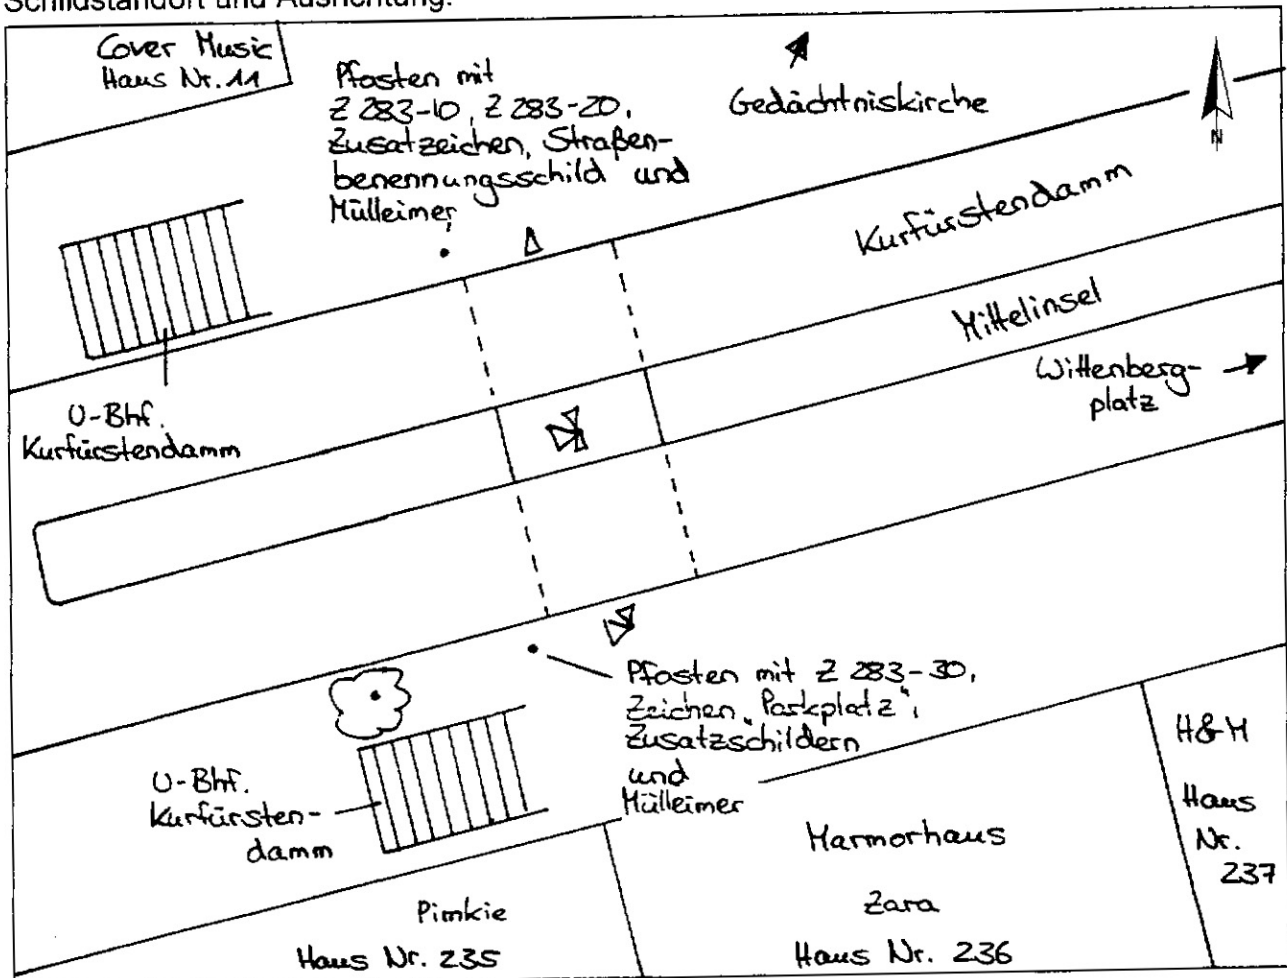 Schildstandort und Ausrichtung:
Cover Music
Haus Nr. 11
Pfosten mit
Z 283-10, Z 283-20,
Zusatzeichen, Straßen-
benennungsschild und
Mülleimer
Gedächtniskirche
N
Kurfürstendamm
Mittelinsel
Wittenberg-
platz
U-Bhf.
Kurfürstendamm
Pfosten mit Z 283-30,
Zeichen „Parkplatz“,
Zusatzschildern
und
Mülleimer
U-Bhf.
Kurfürsten-
damm
H&M
Haus
Nr.
237
Marmorhaus
Zara
Haus Nr. 236
Pimkie
Haus Nr. 235